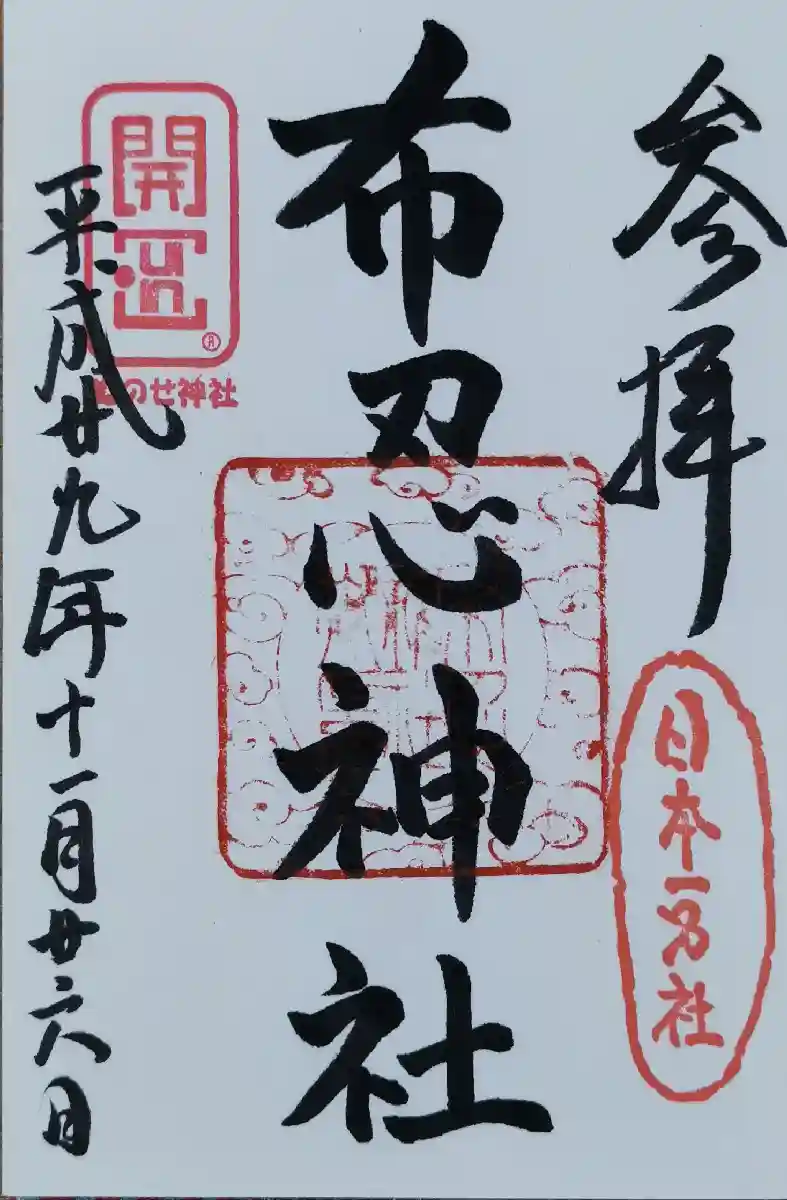 参拝
日本一万社
布忍神社
開運
のせ神社
平成廿九年十一月廿六日